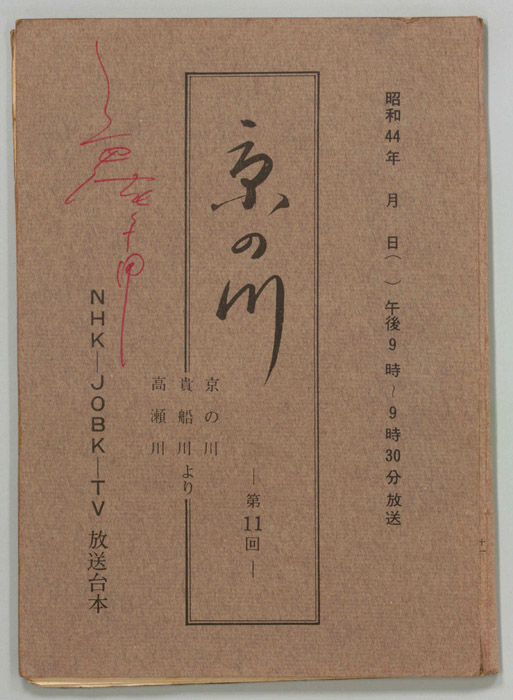 昭和44年　月　日(　)午後9時～9時30分放送
京の川
―第11回―
京の川
貴船川より
高瀬川
NHK―JOBK―TV 放送台本